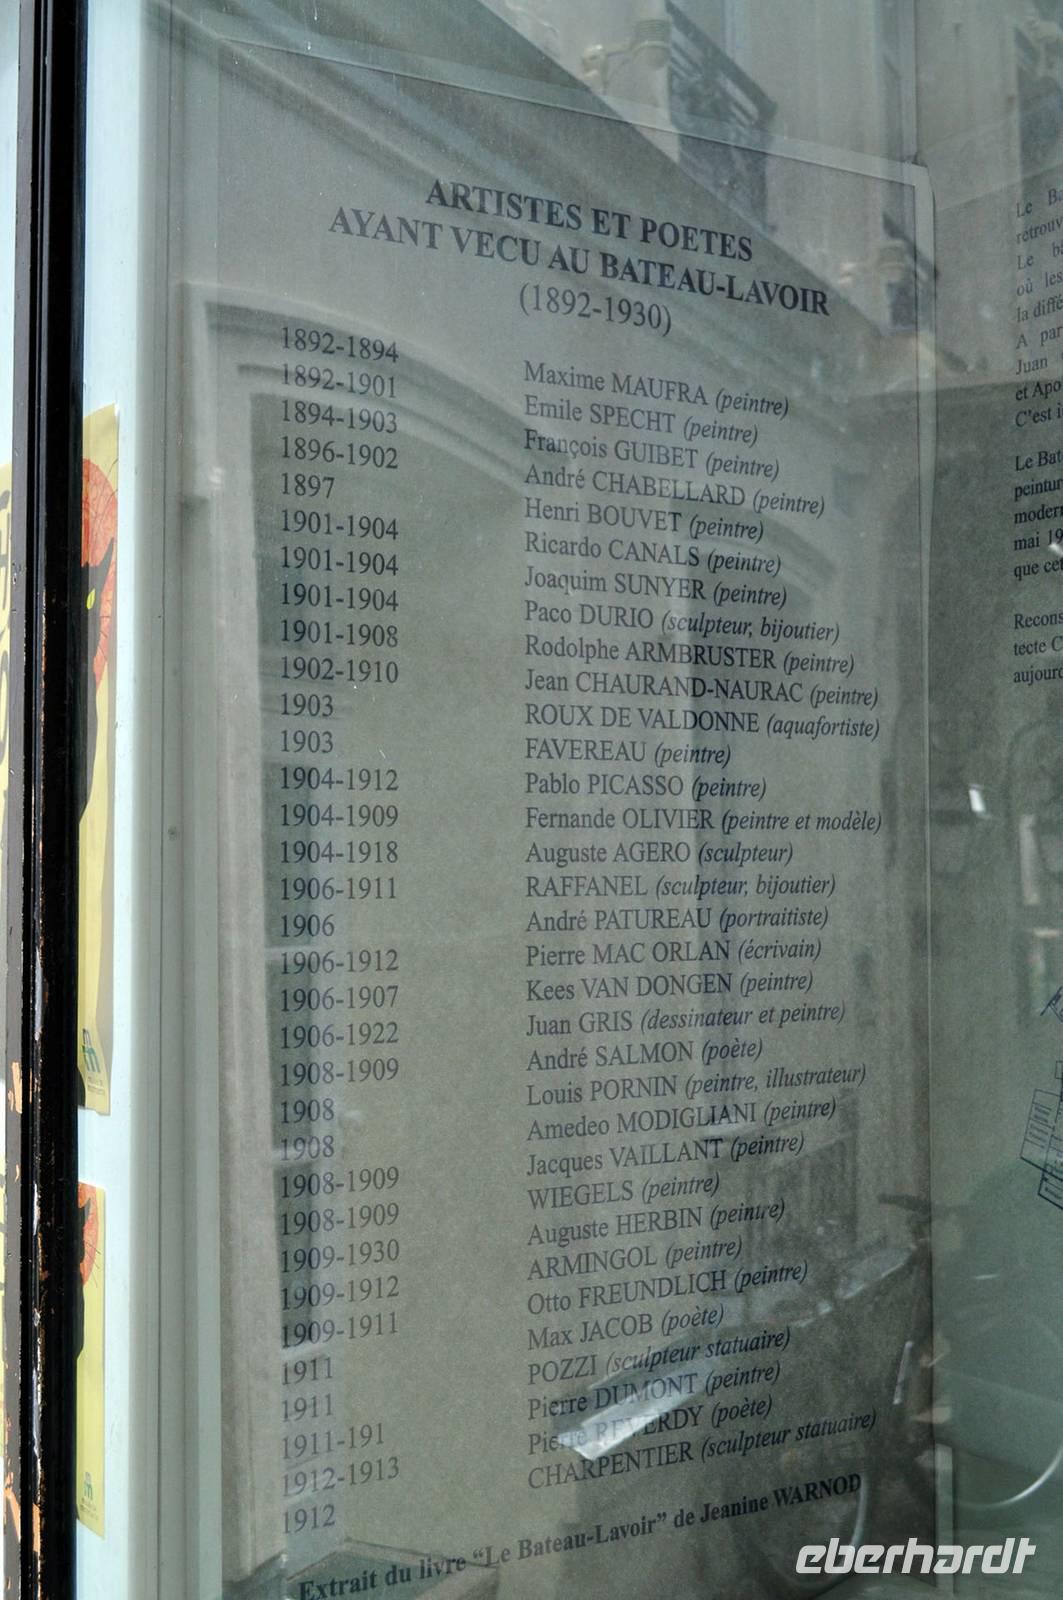 ARTISTES ET POETES
AYANT VECU AU BATEAU-LAVOIR
(1892-1930)
1892-1894 Maxime MAUFRA (peintre)
1892-1901 Emile SPECHT (peintre)
1894-1903 François GUIBET (peintre)
1896-1902 André CHABELLARD (peintre)
1897 Henri BOUVET (peintre)
1901-1904 Ricardo CANALS (peintre)
1901-1904 Joaquim SUNYER (peintre)
1901-1904 Paco DURIO (sculpteur, bijoutier)
1901-1908 Rodolphe ARMBRUSTER (peintre)
1902-1910 Jean CHAURAND-NAURAC (peintre)
1903 ROUX DE VALDONNE (aquafortiste)
1903 FAVEREAU (peintre)
1904-1912 Pablo PICASSO (peintre)
1904-1909 Fernande OLIVIER (peintre et modèle)
1904-1918 Auguste AGERO (sculpteur)
1906-1911 RAFFANEL (sculpteur, bijoutier)
1906 André PATUREAU (portraitiste)
1906-1912 Pierre MAC ORLAN (écrivain)
1906-1907 Kees VAN DONGEN (peintre)
1906-1922 Juan GRIS (dessinateur et peintre)
1908-1909 André SALMON (poète)
1908 Louis PORNIN (peintre, illustrateur)
1908 Amedeo MODIGLIANI (peintre)
1908-1909 Jacques VAILLANT (peintre)
1908-1909 WIEGELS (peintre)
1909-1930 Auguste HERBIN (peintre)
1909-1912 ARMINGOL (peintre)
1909-1911 Otto FREUNDLICH (peintre)
1911 Max JACOB (poète)
1911 POZZI (sculpteur statuaire)
1911-191 Pierre DUMONT (peintre)
1912-1913 Pierre REVERDY (poète)
1912 CHARPENTIER (sculpteur statuaire)
Extrait du livre “Le Bateau-Lavoir” de Jeanine WARNOD
Le Ba
retrouv
Le ba
où les
la diffé
A par
Juan
et Apo
C'est i
Le Bat
peintur
moder
mai 19
que cet
Recons
tecte C
aujourd
eberhardt